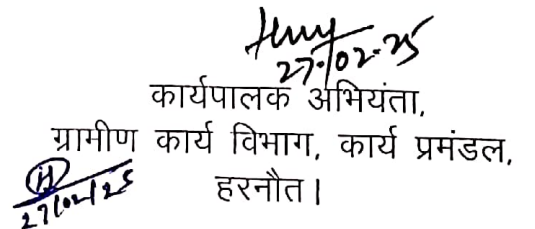 27.02.25
कार्यपालक अभियंता,
ग्रामीण कार्य विभाग, कार्य प्रमंडल,
हरनौत।
H
27/02/25